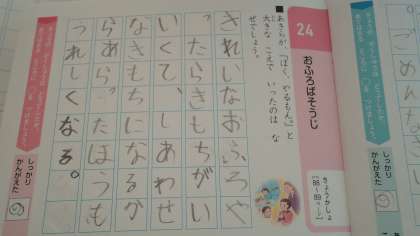 ごめんち
しっかり
かんがえた
24
おふろばそうじ
きょうかしょ
88〜89ページ
■あきらが、「ぼく、やるもん。」と
大きな こえで いったのは な
ぜでしょう。
きれいなおふろや
ったらきもちがい
いくて、しあわせ
なきもちになるか
らあらったほうも
うれしくなる。
しっかり
かんがえた